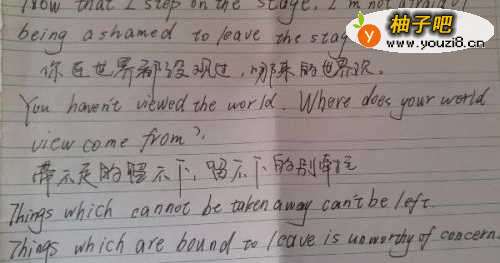 now that I step on the stage, I'm not afraid of
being ashamed to leave the stag
柚子吧
www.youzi8.cn
你连世界都没观过,哪来的世界观。
You haven't viewed the world. Where does your world
view come from?
带不走的留不下,留不下的别牵挂
Things which cannot be taken away can't be left.
Things which are bound to leave is unworthy of concern.